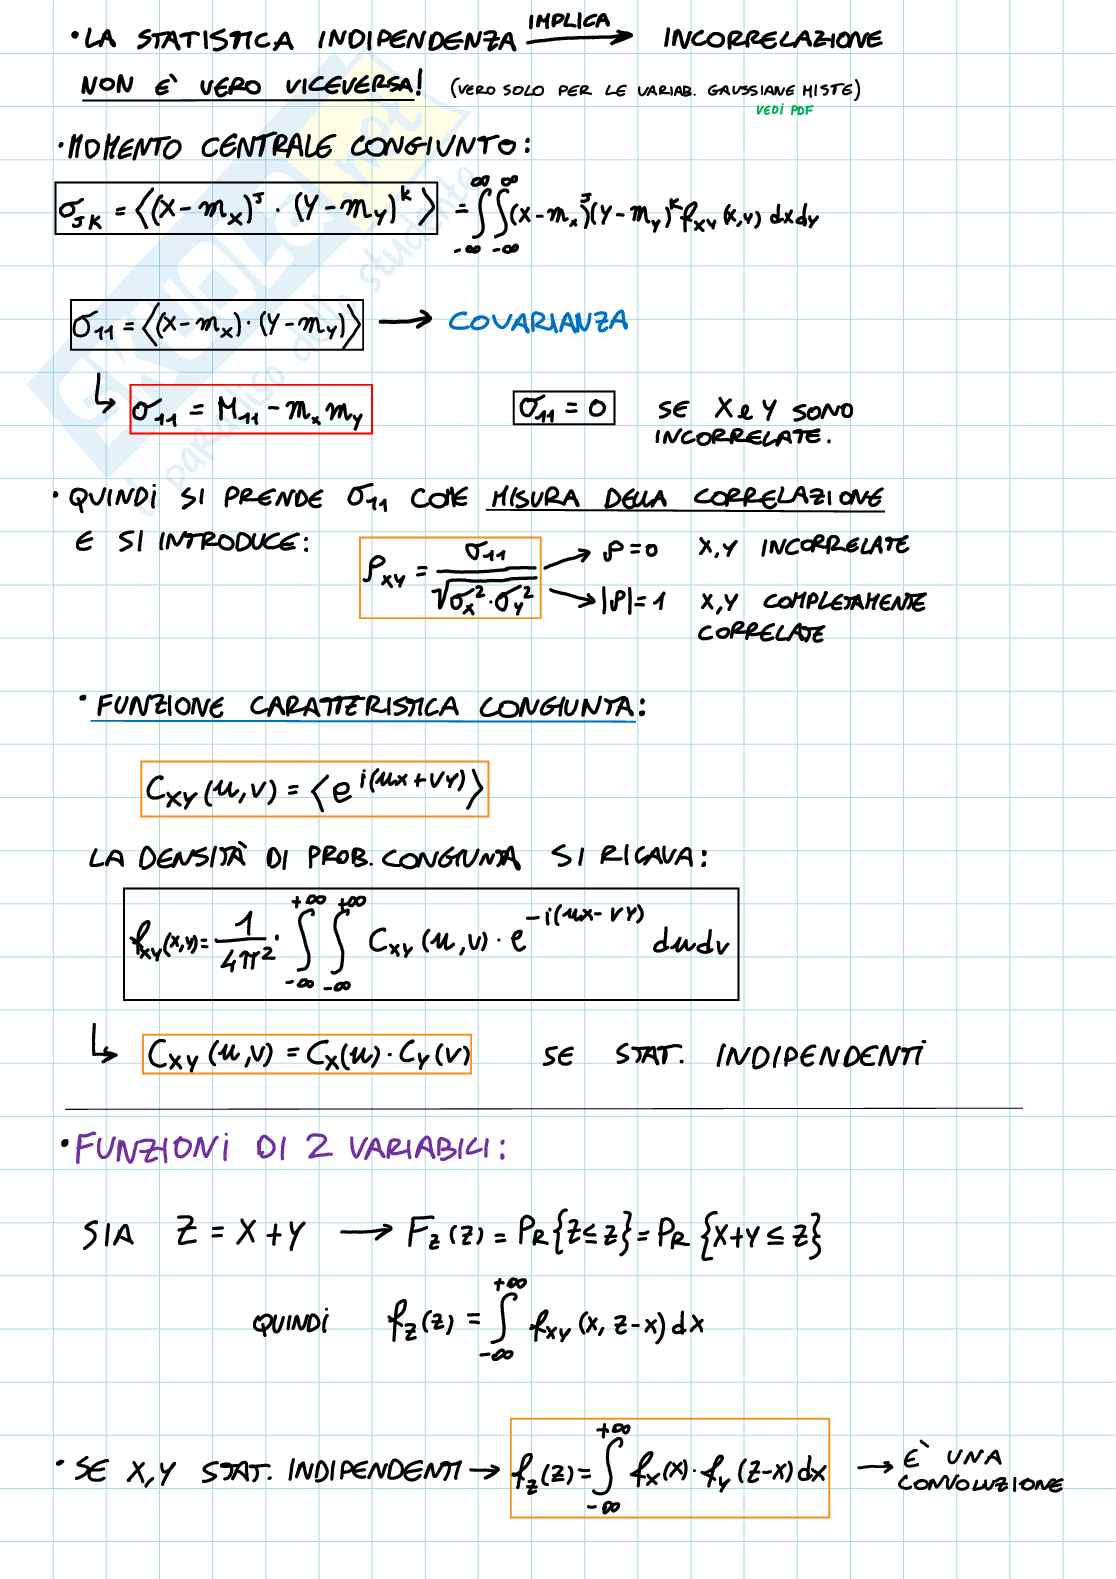 • LA STATISTICA INDIPENDENZA IMPLICA → INCORRELAZIONE
NON E' VERO VICEVERSA! (VERO SOLO PER LE VARIAB. GAUSSIANE MISTE)
VEDI PDF
• MOMENTO CENTRALE CONGIUNTO:
σ_JK = ⟨(X-m_x)^J · (Y-m_y)^K⟩ = ∫_{-∞}^{∞} ∫_{-∞}^{∞} (X-m_x)^J (Y-m_y)^K f_XY (x,y) dxdy
σ_11 = ⟨(X-m_x) · (Y-m_y)⟩ → COVARIANZA
↳ σ_11 = M_11 - m_x m_y σ_11 = 0 SE X e Y SONO
INCORRELATE.
• QUINDI SI PRENDE σ_11 COME MISURA DELLA CORRELAZIONE
E SI INTRODUCE: ρ_XY = σ_11 / √(σ_x² · σ_y²) → ρ=0 X,Y INCORRELATE
→ |ρ|=1 X,Y COMPLETAMENTE
CORRELATE
• FUNZIONE CARATTERISTICA CONGIUNTA:
C_XY (u,v) = ⟨e^{i(ux+vy)}⟩
LA DENSITÀ DI PROB. CONGIUNTA SI RICAVA:
f_XY(x,y) = 1/4π² · ∫_{-∞}^{+∞} ∫_{-∞}^{+∞} C_XY (u,v) · e^{-i(ux-vy)} dudv
↳ C_XY (u,v) = C_X(u) · C_Y(v) SE STAT. INDIPENDENTI
• FUNZIONI DI 2 VARIABILI:
SIA Z = X+Y → F_Z (z) = PR{Z≤z} = PR {X+Y ≤ z}
QUINDI f_Z (z) = ∫_{-∞}^{+∞} f_XY (x, z-x) dx
• SE X,Y STAT. INDIPENDENTI → f_Z (z) = ∫_{-∞}^{+∞} f_X(x) · f_Y (z-x) dx → E' UNA
CONVOLUZIONE